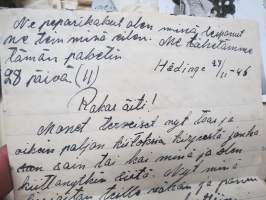 Ne peparikakut olen minä leiponut
ne tein minä eilen. Me lähetämme
tämän paketin
28 päivä (11)
Hädinge 27/11-46
Rakas äiti!
Monet terveiset nyt taas ja
oikein paljon kiitoksia kirjeestä jonka
sain tai kai minä jo olen
kiittänytkin siitä Nyt minä
teille vähän ja panen